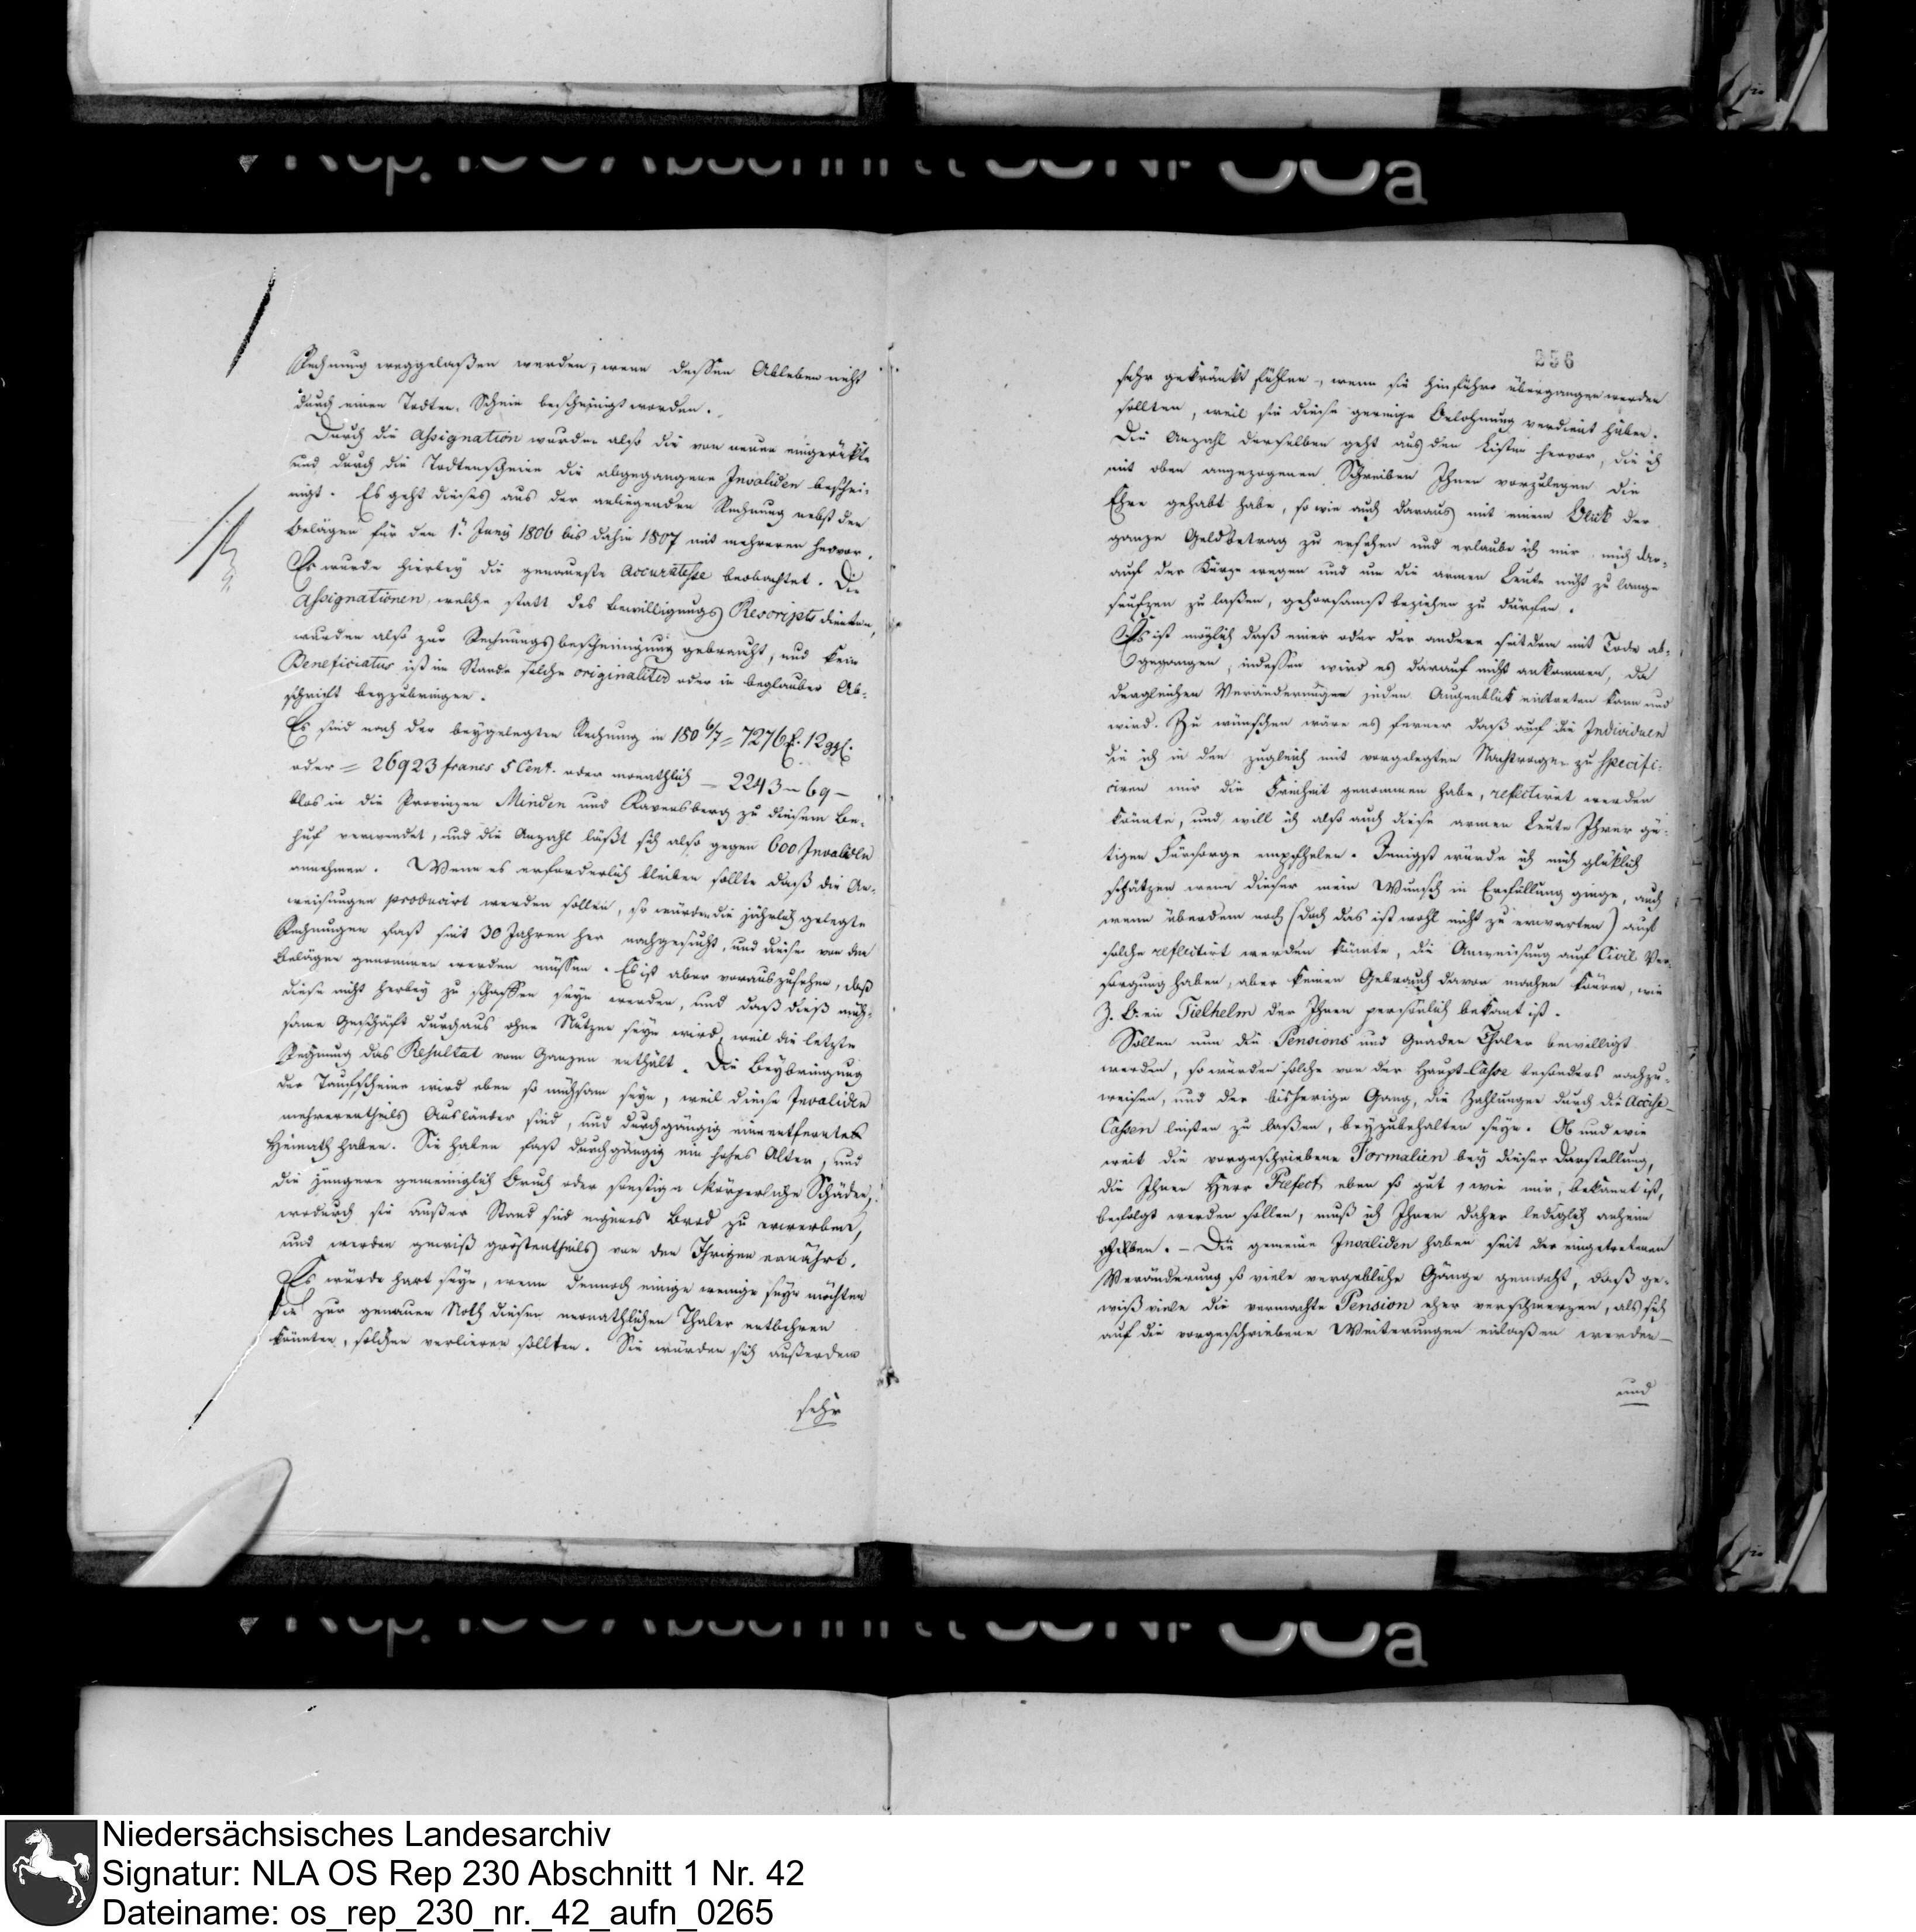 Rechnung weggelaßen werden, wenn dessen Ableben nicht
durch einen Todten-Schein bescheinigt worden.
Durch die Assignation wurden also die von neuen eingerükte
und durch die Todtenscheine die abgegangene Invaliden beschei-
nigt. Es geht dieses aus der anliegenden Rechnung nebst den
Belägen für den 1t Juny 1806 bis dahin 1807 mit mehreren hervor.
Es wurde hierbey die genaueste Accuratesse beobachtet. Die
Assignationen, welche statt des Bewilligungs Rescripts dienten,
wurden also zur Rechnungsbescheinigung gebraucht, und kein
Beneficiatus ist im Stande solche originaliter oder in beglaubter Ab-
schrift beyzubringen.
Es sind nach der beygelegten Rechnung in 180 6/7 = 7276 12 ggl.
oder = 26923 francs 5 Cent. oder monathlich – 2243 – 69 –
blos in die Provinzen Minden und Ravensberg zu diesem Be-
huf verwendet, und die Anzahl läßt sich also gegen 600 Invaliden
annehmen. Wenn es erforderlich bleiben sollte daß die An-
weisungen producirt werden sollen, so würden die jährlich gelegte
Rechnungen fast seit 30 Jahren her nachgesucht, und diese von den
Belägen genommen werden müssen. Es ist aber vorauszusehen, daß
diese nicht herbey zu schaffen seyn werden, und daß dieß müh-
same Geschäft durchaus ohne Nutzen seyn wird, weil die letzte
Rechnung das Resultat vom Ganzen enthält. Die Beybringung
der Taufscheine wird eben so mühsam seyn, weil diese Invaliden
mehrerentheils Ausländer sind, und durchgängig eine entfernte
Heimath haben. Sie haben fast durchgängig ein hohes Alter, und
die jüngere gemeiniglich Bruch oder sonstige körperliche Schäden,
wodurch sie außer Stand sind eigenes Brod zu erwerben,
und werden gewiß gröstentheils von den Ihrigen ernährt.
Es würde hart seyn, wenn dennoch einige wenige seyn möchten
die zur genauen Noth diesen monathlichen Thaler entbehren
könnten, solchen verlieren sollten. Sie würden sich außerdem
sehr
256
sehr gekränkt fühlen, wenn sie hinführo übergangen werden
sollten, weil sie diese geringe Belohnung verdient haben.
Die Anzahl derselben geht aus den Listen hervor, die ich
mit oben angezogenen Schreiben Ihnen vorzulegen die
Ehre gehabt habe, so wie auch daraus mit einem Blick der
ganze Geldbetrag zu ersehen und erlaube ich mir, mich dar-
auf der Kürze wegen und um die armen Leute nicht zu lange
seufzen zu laßen, gehorsamst beziehen zu dürfen.
Es ist möglich daß einer oder der andere seitdem mit Tode ab-
gegangen, indessen wird es darauf nicht ankommen, da
dergleichen Veränderungen jeden Augenblick eintreten kann und
wird. Zu wünschen wäre es ferner daß auf die Individuen
die ich in den zugleich mit vorgelegten Nachtragen zu specifi-
ciren mir die Freiheit genommen habe, reflectiret werden
könnte, und will ich also auch diese armen Leute Ihrer gü-
tigen Fürsorge empfehlen. Innigst würde ich mich glüklich
schätzen wenn dieser mein Wunsch in Erfüllung ginge, auch
wenn überdem noch (doch das ist wohl nicht zu erwarten) auf
solche reflectirt werden könnte, die Anweisung auf Civil Ver-
sorgung haben, aber keinen Gebrauch davon machen können, wie
z. B. ein Tielhelm der Ihnen persönlich bekant ist.
Sollen nun die Pensions und Gnaden Thaler bewilligt
werden, so würden solche von der Haupt-Casse besonders nachzu-
weisen, und der bisherige Gang, die Zahlungen durch die Accise-
Cassen leisten zu laßen, beyzubehalten seyn. Ob und wie
weit die vorgeschriebene Formalien bey dieser Darstellung,
die Ihnen Herr Prefect eben so gut, wie mir, bekannt ist,
befolgt werden sollen, muß ich Ihnen daher lediglich anheim
geben. – Die gemeine Invaliden haben seit der eingetretenen
Veränderung so viele vergebliche Gänge gemacht, daß ge-
wiß viele die vermachte Pension eher verschmerzen, als sich
auf die vorgeschriebene Weiterungen einlaßen werden –
und
Niedersächsisches Landesarchiv
Signatur: NLA OS Rep 230 Abschnitt 1 Nr. 42
Dateiname: os_rep_230_nr._42_aufn_0265